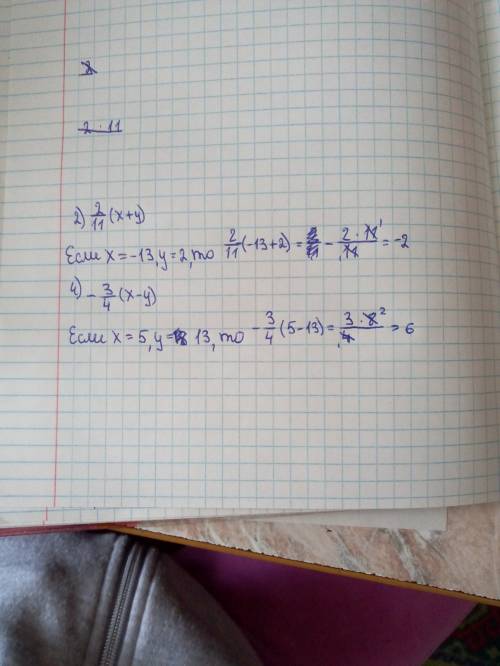 2 · 11
2) 2/11 (x+y)
Если x = -13, y = 2, то 2/11 (-13+2) = - 2 · 11 1 / 11 1 = -2
4) - 3/4 (x-y)
Если x = 5, y = 13, то - 3/4 (5-13) = 3 · 8 2 / 4 1 = 6